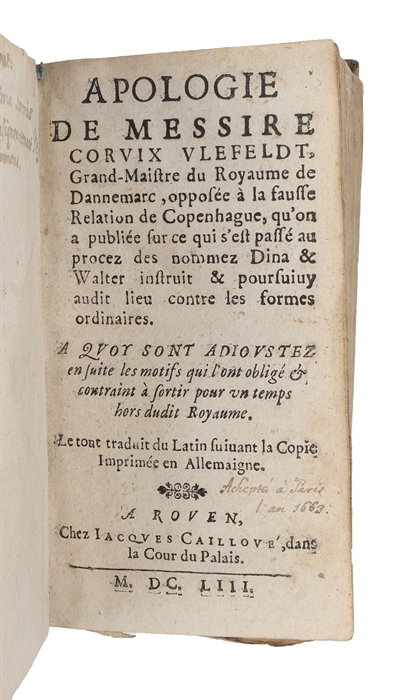 APOLOGIE
DE MESSIRE
CORVIX VLEFELDT,
Grand-Maiſtre du Royaume de
Dannemarc, opposée à la fauſſe
Relation de Copenhague, qu'on
a publiée ſur ce qui s'eſt paſſé au
procez des nommez Dina &
Walter inſtruit & pourſuiuy
audit lieu contre les formes
ordinaires.
A QVOY SONT ADIOVSTEZ
en ſuite les motifs qui l'ont obligé &
contraint à ſortir pour vn temps
hors dudit Royaume.
Le tout traduit du Latin ſuiuant la Copie
Imprimée en Allemaigne.
Achepté à Paris
l'an 1663.
A ROVEN,
Chez IACQVES CAILLOVE', dans
la Cour du Palais.
M. DC. LIII.